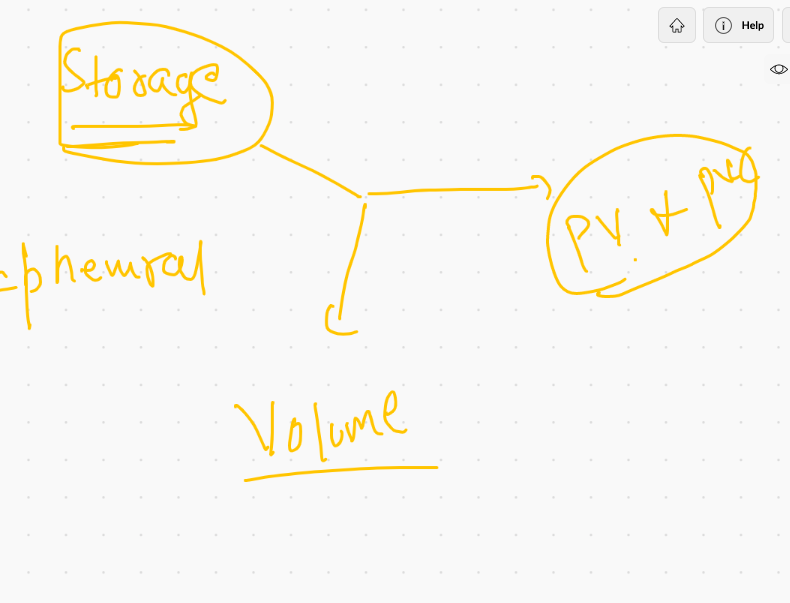 Help
Storage
PV + PVC
ephemral
Volume